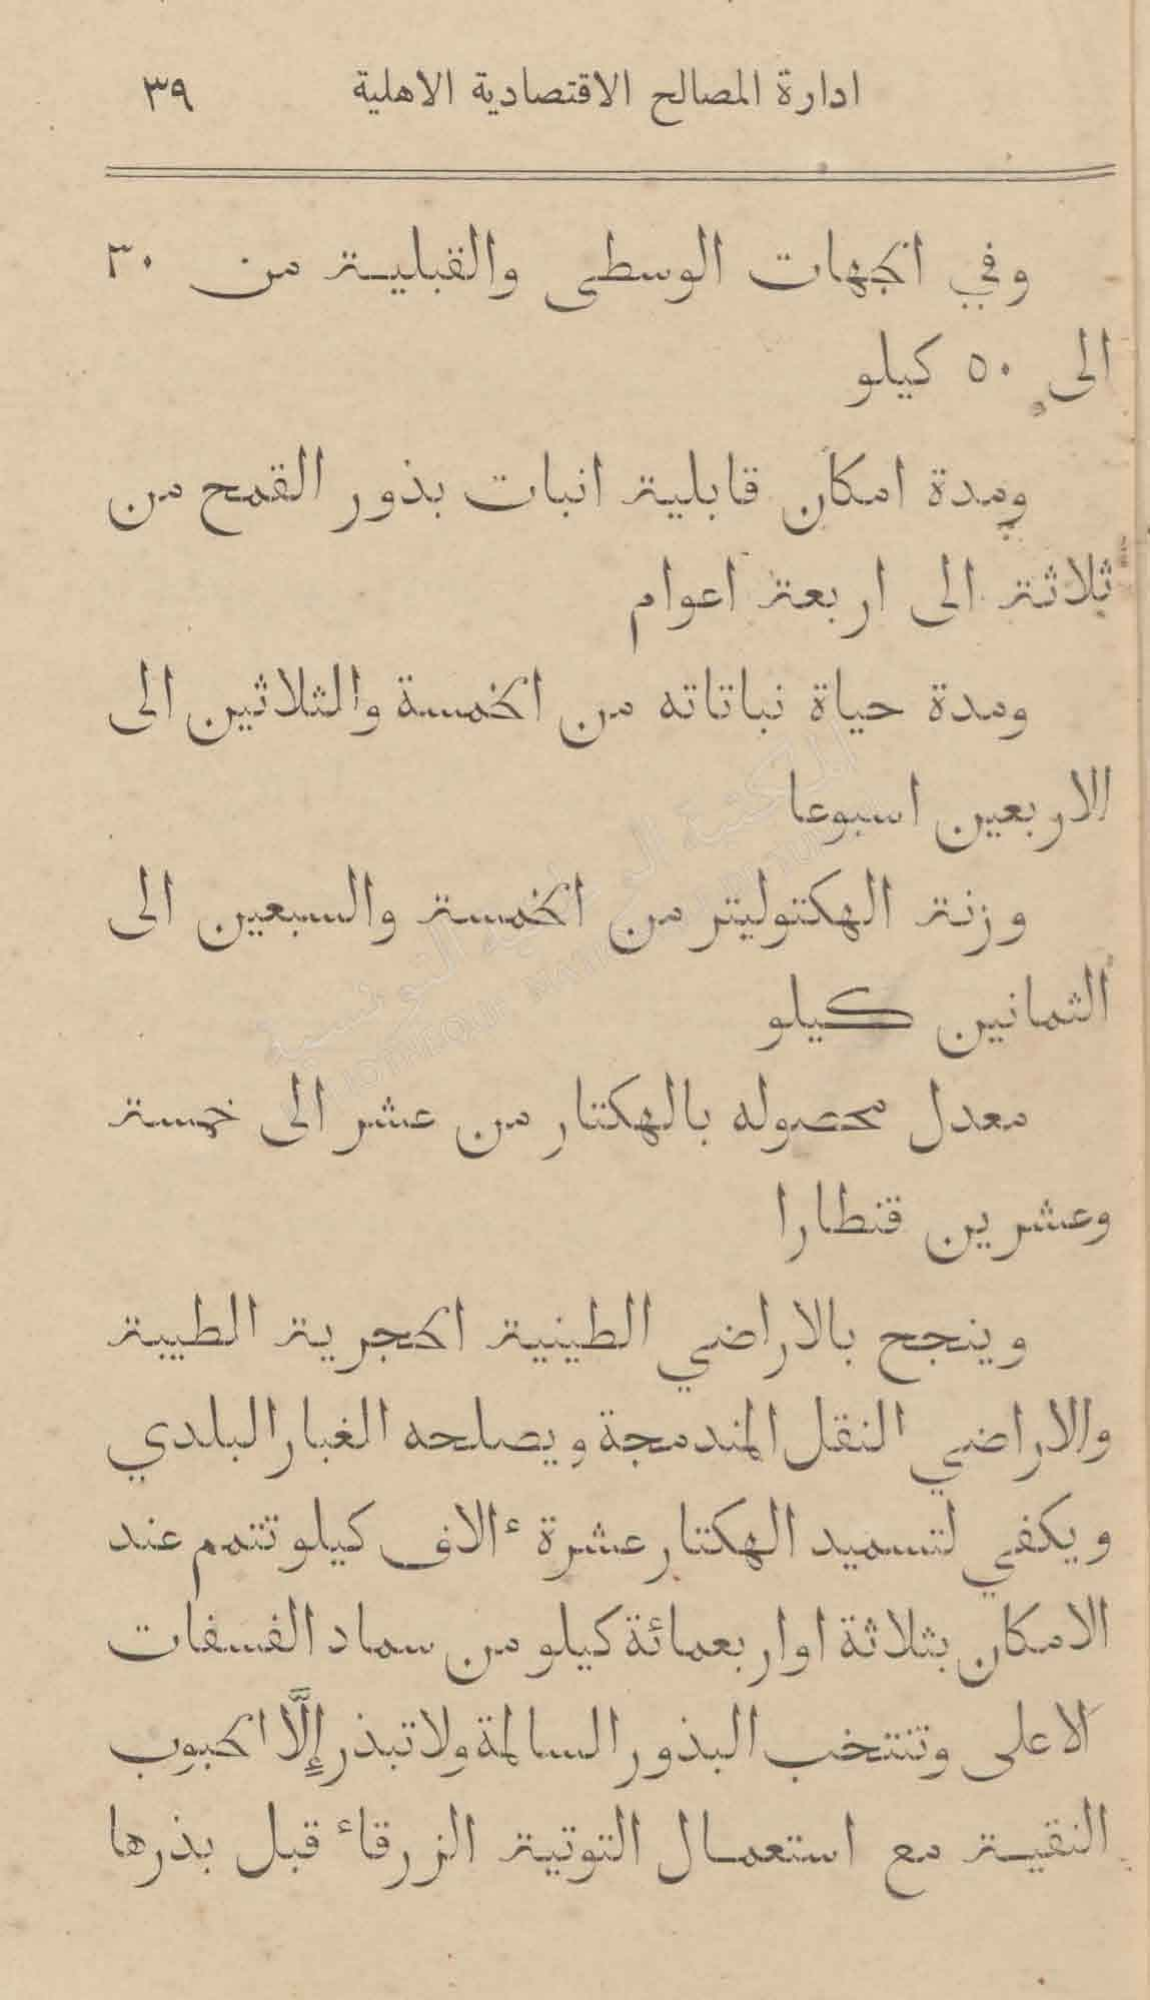 ادارة المصالح الاقتصادية الاهلية ٣٩
وفي الجهات الوسطى والقبلية من ٣٠
الى ٥٠ كيلو
ومدة امكان قابلية انبات بذور القمح من
ثلاثة الى اربعة اعوام
ومدة حياة نباتاته من الخمسة والثلاثين الى
الاربعين اسبوعا
وزنة الهكتوليتر من الخمسة والسبعين الى
الثمانين كيلو
معدل محصوله بالهكتار من عشر الى خمسة
وعشرين قنطارا
وينجح بالاراضي الطينية الحجرية الطيبة
والاراضي النقل المندمجة ويصلحه الغبار البلدي
ويكفي لتسميد الهكتار عشرة ءالاف كيلو تتمم عند
الامكان بثلاثة او اربعمائة كيلو من سماد الفسفات
الاعلى وتنتخب البذور السالمة ولا تبذر إلَّا الحبوب
النقية مع استعمال التوتية الزرقاء قبل بذرها
المكتبة الوطنية التونسية